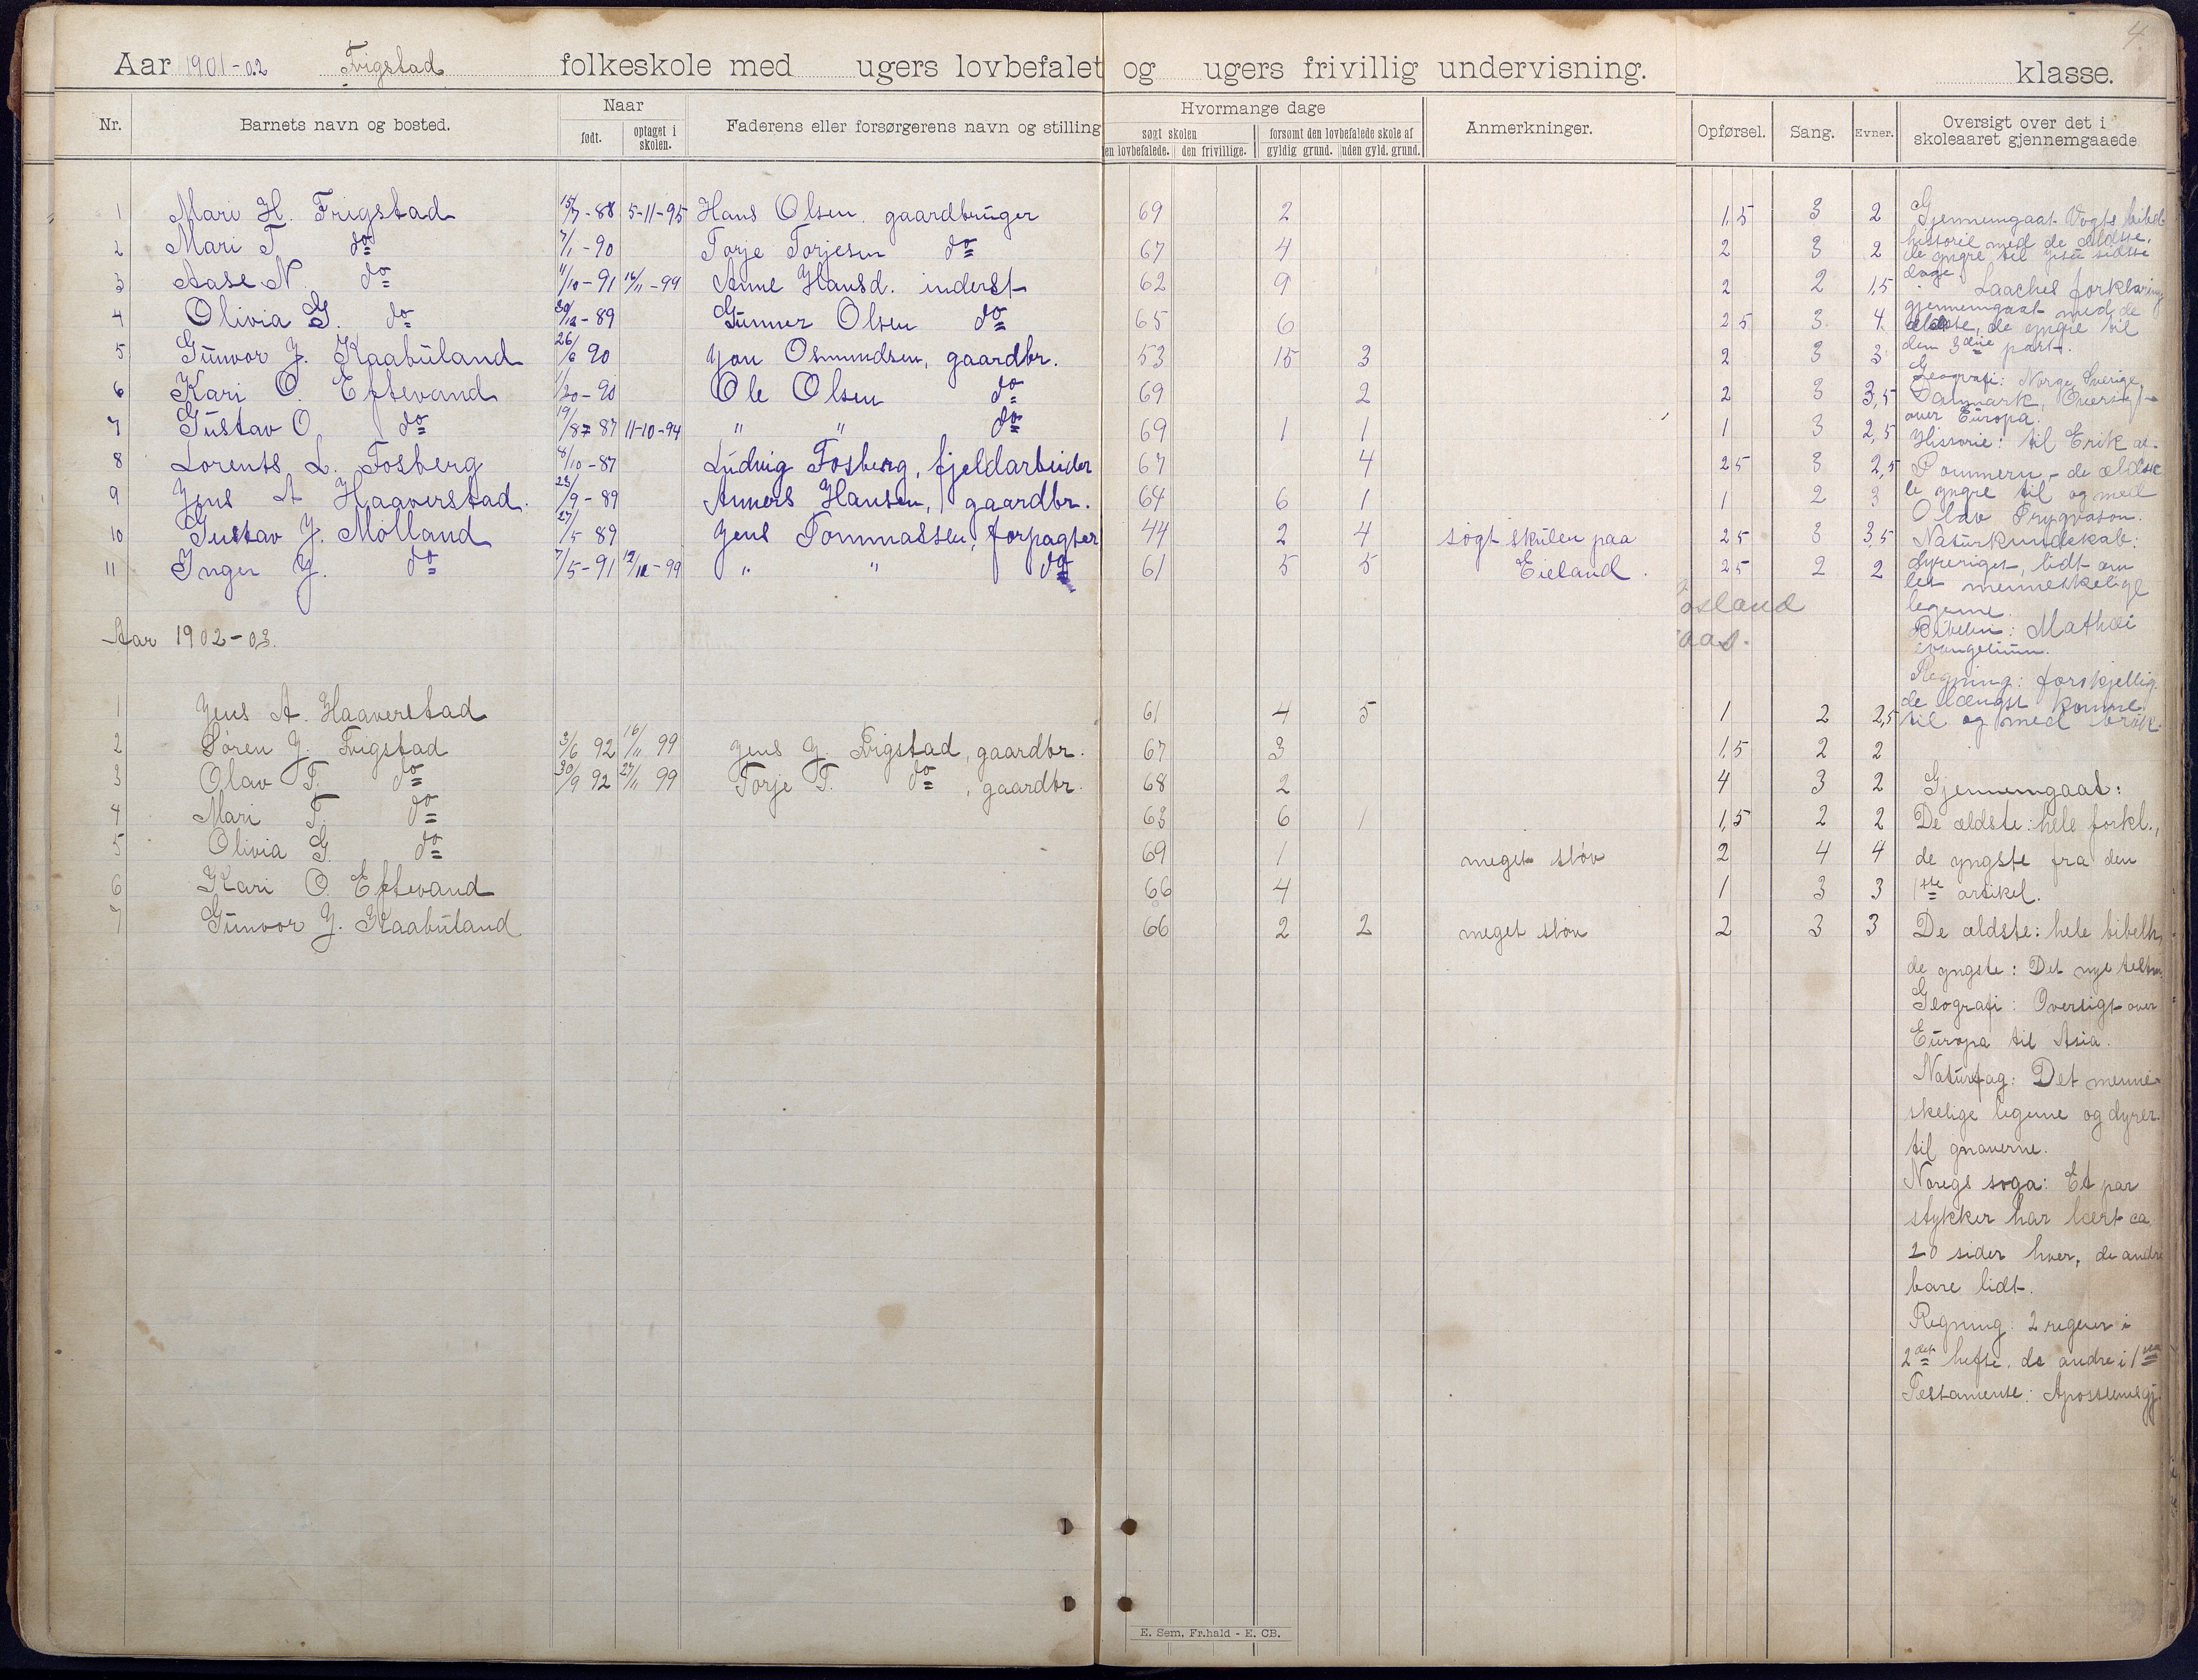 4.
Aar 1901-02 Frigstad folkeskole med ugers lovbefalet og ugers frivillig undervisning. klasse.
Nr. Barnets navn og bosted. Naar født. optaget i skolen. Faderens eller forsørgerens navn og stilling Hvormange dage søgt skolen en lovbefalede. den frivillige. forsømt den lovbefalede skole af gyldig grund. uden gyld. grund. Anmerkninger. Opførsel. Sang. Evner. Oversigt over det i skoleaaret gjennemgaaede
1 Mari H. Frigstad 15/7-88 5-11-95 Hans Olsen, gaardbruger 69 2 1,5 3 2
2 Mari T. do 7/1-90 Torje Torjesen do 67 4 2 3 2
3 Aase N. do 11/10-91 16/11-99 Anne Hansd. inderst 62 9 2 2 1,5
4 Olivia G. do 30/12-89 Gunner Olsen do 65 6 2 5 3 4
5 Gunvor J. Kaabuland 26/6 90 Jon Osmundsen, gaardbr. 53 15 3 2 3 3
6 Kari O. Eptevand 1/20-90 Ole Olsen do 69 2 2 3 3,5
7 Gustav O. do 19/8 87 11-10-94 " " do 69 1 1 1 3 2,5
8 Lorents L. Fosberg 8/10-87 Ludvig Fosberg, fjeldarbeider 67 4 2 5 3 2,5
9 Jens A Haaverstad. 23/9-89 Anners Hansen, gaardbr. 64 6 1 1 2 3
10 Gustav J. Mølland 27/5 89 Jens Tommassen, forpagter 44 2 4 søgt skulen paa 2 5 3 3,5
11 Inger J. do 7/5-91 12/11-99 " " do 61 5 5 Eieland. 2 5 2 2
Gjennemgaat Vogts bibel-
historie med de ældste,
de yngre til Jesu sidste
dage
Laaches forklaring
gjennemgaat med de
ældste, de yngre til
den 3die part.
Geografi: Norge, Sverige,
Danmark, Oversigt
over Europa.
Historie: til Erik af
Pommern - de ældste
de yngre til og med
Olav Trygvason.
Naturkundskab:
dyreriget, lidt om
det menneskelige
legeme.
Bibelen: Mathæi
evangelium.
Regning: forskjellig
de længst komne
til og med brøk.
osland
aas.
Aar 1902-03.
1 Jens A. Haaverstad 61 4 5 1 2 2,5
2 Søren J. Frigstad 3/6 92 16/11 99 Jens J. Frigstad, gaardbr. 67 3 1,5 2 2
3 Olav T. do 30/9 92 27/11 99 Torje T. do, gaardbr. 68 2 4 3 2
4 Mari T. do 63 6 1 1,5 2 2
5 Olivia G. do 69 1 meget sløv 2 4 4
6 Kari O. Eptevand 66 4 1 3 3
7 Gunvor J. Kaabuland 66 2 2 meget sløv 2 3 3
Gjennemgaat:
De ældste: hele forkl.,
de yngste fra den
1ste artikel.
De ældste: hele bibelh,
de yngste: Det nye testm.
Geografi: Oversigt over
Europa til Asia.
Naturfag: Det menne-
skelige legeme og dyrer.
til gnaverne.
Noregs soga: Et par
stykker har lært ca.
20 sider hver, de andre
bare lidt.
Regning: 2 regner i
2det hefte, de andre i 1ste
Testamente: Apostlenesgj.
E. Sem, Fr.hald - E. CB.